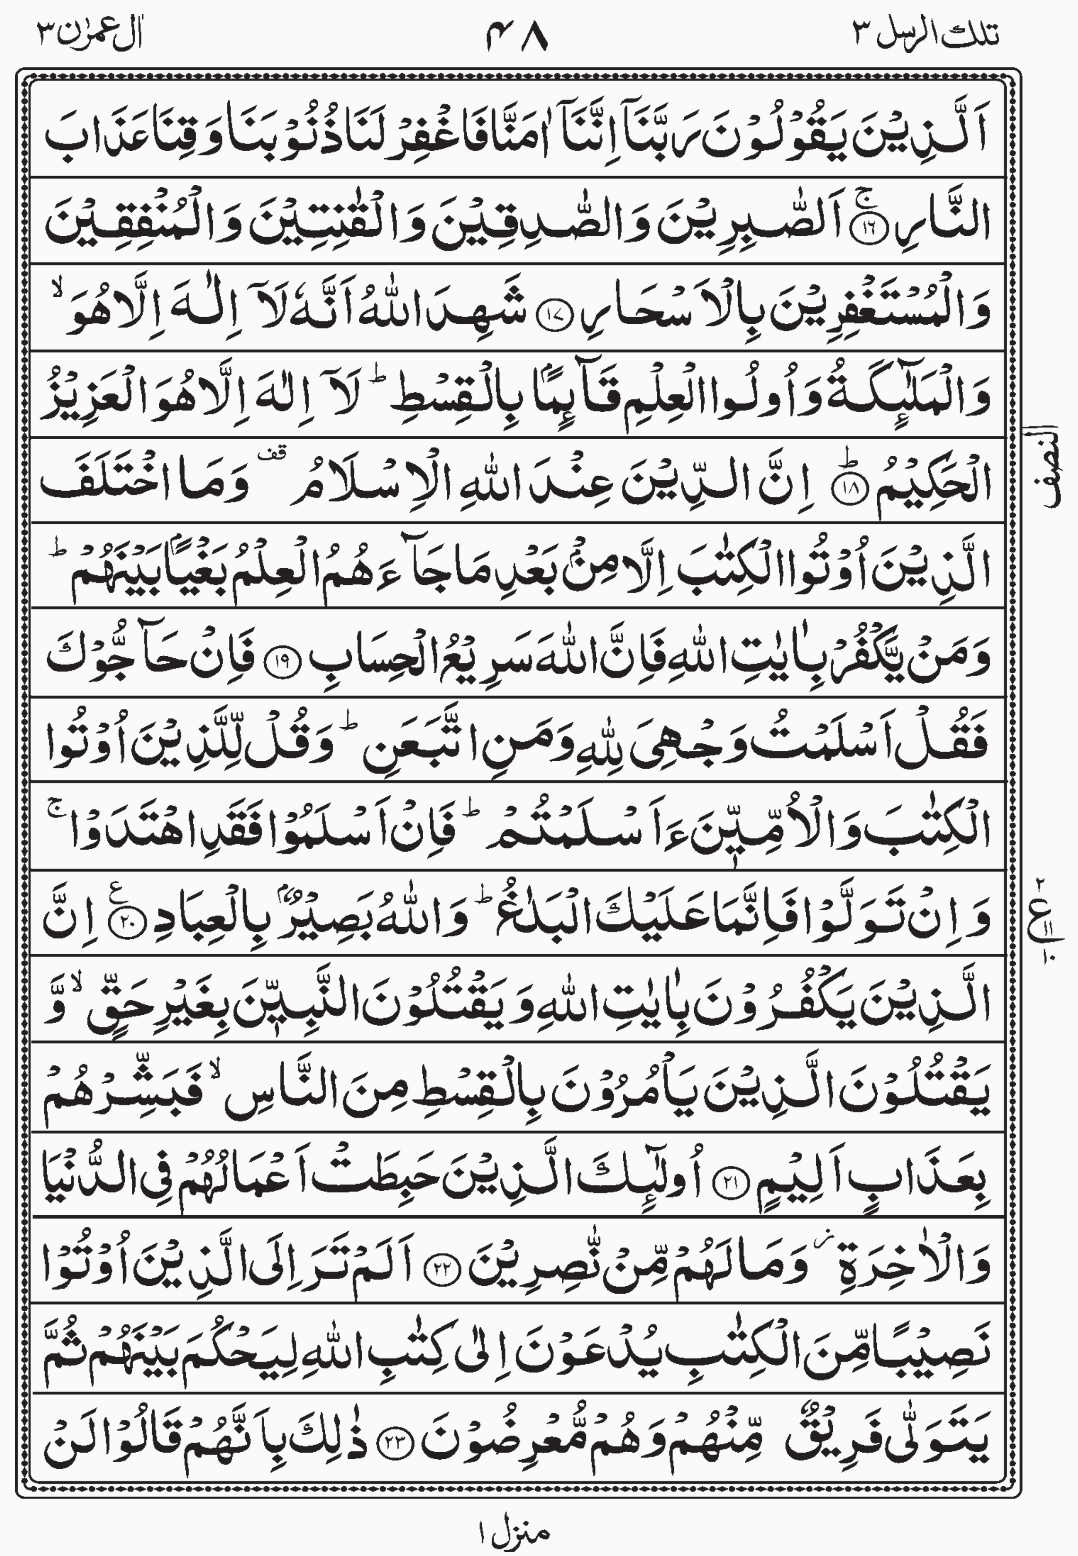 تلك الرسل ٣
٤٨
اٰل عمرٰن ٣
اَلَّذِيْنَ يَقُوْلُوْنَ رَبَّنَاۤ اِنَّنَاۤ اٰمَنَّا فَاغْفِرْ لَنَا ذُنُوْبَنَا وَقِنَا عَذَابَ
النَّارِ ۚ ﴿١٦﴾ اَلصّٰبِرِيْنَ وَالصّٰدِقِيْنَ وَالْقٰنِتِيْنَ وَالْمُنْفِقِيْنَ
وَالْمُسْتَغْفِرِيْنَ بِالْاَسْحَارِ ﴿١٧﴾ شَهِدَ اللّٰهُ اَنَّهٗ لَاۤ اِلٰهَ اِلَّا هُوَ ۙ
وَالْمَلٰٓئِكَةُ وَاُولُوا الْعِلْمِ قَآئِمًۢا بِالْقِسْطِ ؕ لَاۤ اِلٰهَ اِلَّا هُوَ الْعَزِيْزُ
الْحَكِيْمُ ؕ ﴿١٨﴾ اِنَّ الدِّيْنَ عِنْدَ اللّٰهِ الْاِسْلَامُ قف وَمَا اخْتَلَفَ
النصف
الَّذِيْنَ اُوْتُوا الْكِتٰبَ اِلَّا مِنْۢ بَعْدِ مَا جَآءَهُمُ الْعِلْمُ بَغْيًۢا بَيْنَهُمْ ؕ
وَمَنْ يَّكْفُرْ بِاٰيٰتِ اللّٰهِ فَاِنَّ اللّٰهَ سَرِيْعُ الْحِسَابِ ﴿١٩﴾ فَاِنْ حَآجُّوْكَ
فَقُلْ اَسْلَمْتُ وَجْهِيَ لِلّٰهِ وَمَنِ اتَّبَعَنِ ؕ وَقُلْ لِّلَّذِيْنَ اُوْتُوا
الْكِتٰبَ وَالْاُمِّيّٖنَ ءَاَسْلَمْتُمْ ؕ فَاِنْ اَسْلَمُوْا فَقَدِ اهْتَدَوْا ۚ
وَاِنْ تَوَلَّوْا فَاِنَّمَا عَلَيْكَ الْبَلٰغُ ؕ وَاللّٰهُ بَصِيْرٌۢ بِالْعِبَادِ ع ﴿٢٠﴾ اِنَّ
٢
ع
١١
١٠
الَّذِيْنَ يَكْفُرُوْنَ بِاٰيٰتِ اللّٰهِ وَيَقْتُلُوْنَ النَّبِيّٖنَ بِغَيْرِ حَقٍّ ۙ وَّ
يَقْتُلُوْنَ الَّذِيْنَ يَاْمُرُوْنَ بِالْقِسْطِ مِنَ النَّاسِ ۙ فَبَشِّرْهُمْ
بِعَذَابٍ اَلِيْمٍ ﴿٢١﴾ اُولٰٓئِكَ الَّذِيْنَ حَبِطَتْ اَعْمَالُهُمْ فِي الدُّنْيَا
وَالْاٰخِرَةِ ز وَمَا لَهُمْ مِّنْ نّٰصِرِيْنَ ﴿٢٢﴾ اَلَمْ تَرَ اِلَى الَّذِيْنَ اُوْتُوْا
نَصِيْبًا مِّنَ الْكِتٰبِ يُدْعَوْنَ اِلٰى كِتٰبِ اللّٰهِ لِيَحْكُمَ بَيْنَهُمْ ثُمَّ
يَتَوَلّٰى فَرِيْقٌ مِّنْهُمْ وَهُمْ مُّعْرِضُوْنَ ﴿٢٣﴾ ذٰلِكَ بِاَنَّهُمْ قَالُوْا لَنْ
منزل ١